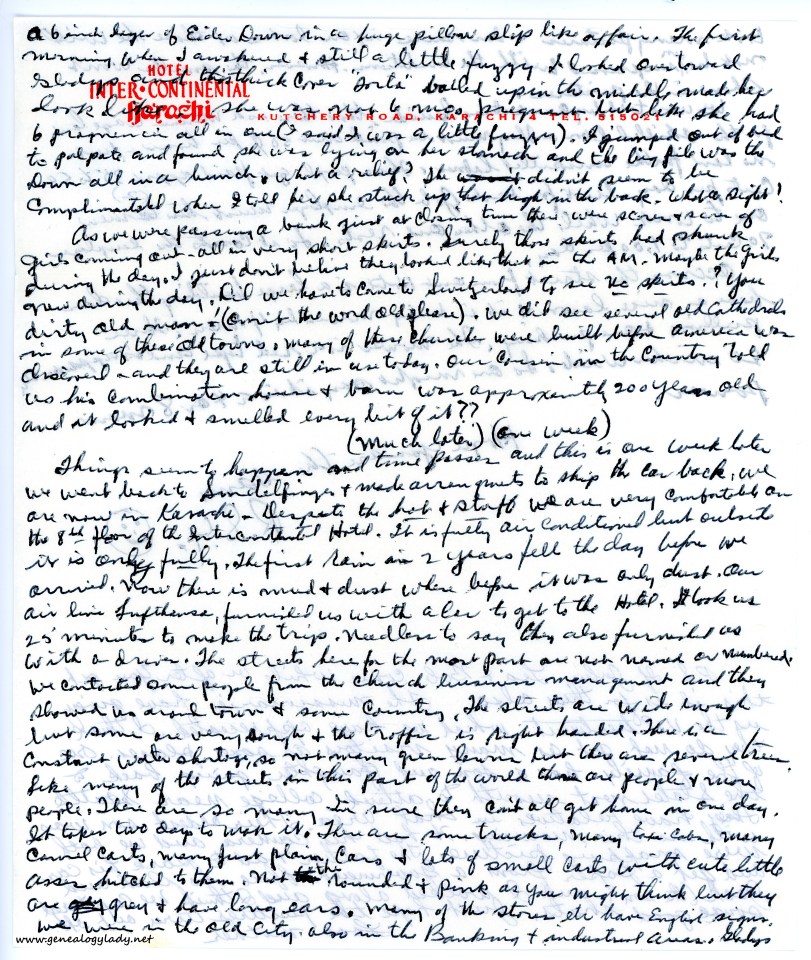 a 6 inch layer of Eider Down in a huge pillow slip like affair. The first
morning when I awakened & still a little fuzzy I looked over toward
Gladys and the thick cover "sorta" balled up in the middle made her
HOTEL
INTER·CONTINENTAL
Karachi
KUTCHERY ROAD, KARACHI 4 TEL. 515021
look like she was not 6 mos pregnant but like she had
6 pregnancies all in one (I said I was a little fuzzy). I jumped out of bed
to palpate and found she was lying on her stomach and the big pile was the
Down all in a bunch. What a relief? She didn't seem to be
complimented when I told her she stuck up that high in the back. What a sight!
As we were passing a bank just at closing time there were scores & scores of
girls coming out - all in very short skirts. Surely those skirts had shrunk
during the day. I just don't believe they looked like that in the AM. Maybe the girls
grew during the day. Did we have to come to Switzerland to see no skirts.? You
dirty old man! (omit the word old please). We did see several old Cathedrals
in some of these old towns. Many of these churches were built before America was
discovered - and they are still in use today. Our Cousin in the Country told
us his combination house & barn was approximately 200 years old
and it looked & smelled every bit of it??
(Much later) (one week)
Things seem to happen and time passes and this is one week later
We went back to Sindelfingen & made arrangements to ship the car back. We
are now in Karachi - Despite the hot & stuff we are very comfortable on
the 8th floor of the Intercontinental Hotel. It is fully air conditioned but outside
it is only fully. The first rain in 2 years fell the day before we
arrived. Now there is mud & dust where before it was only dust. Our
air line Lufthansa, furnished us with a car to get to the Hotel. It took us
25 minutes to make the trip. Needless to say they also furnished us
with a driver. The streets here for the most part are not named or numbered.
We contacted some people from the Church business management and they
showed us around town & some Country. The streets are wide enough
but some are very rough & the traffic is right handed. There is a
Constant water shortage, so not many green lawns but there are several trees.
Like many of the streets in this part of the world there are people & more
people. There are so many I'm sure they can't all get home in one day.
It takes two days to make it. There are some trucks, many taxi cabs, many
Camel carts, many just plain cars & lots of small carts with cute little
asses hitched to them. Not the rounded & pink as you might think but they
are grey & have long ears. Many of the stores etc have English signs.
We were in the Old City also in the Banking & industrial areas. Gladys
www.genealogylady.net